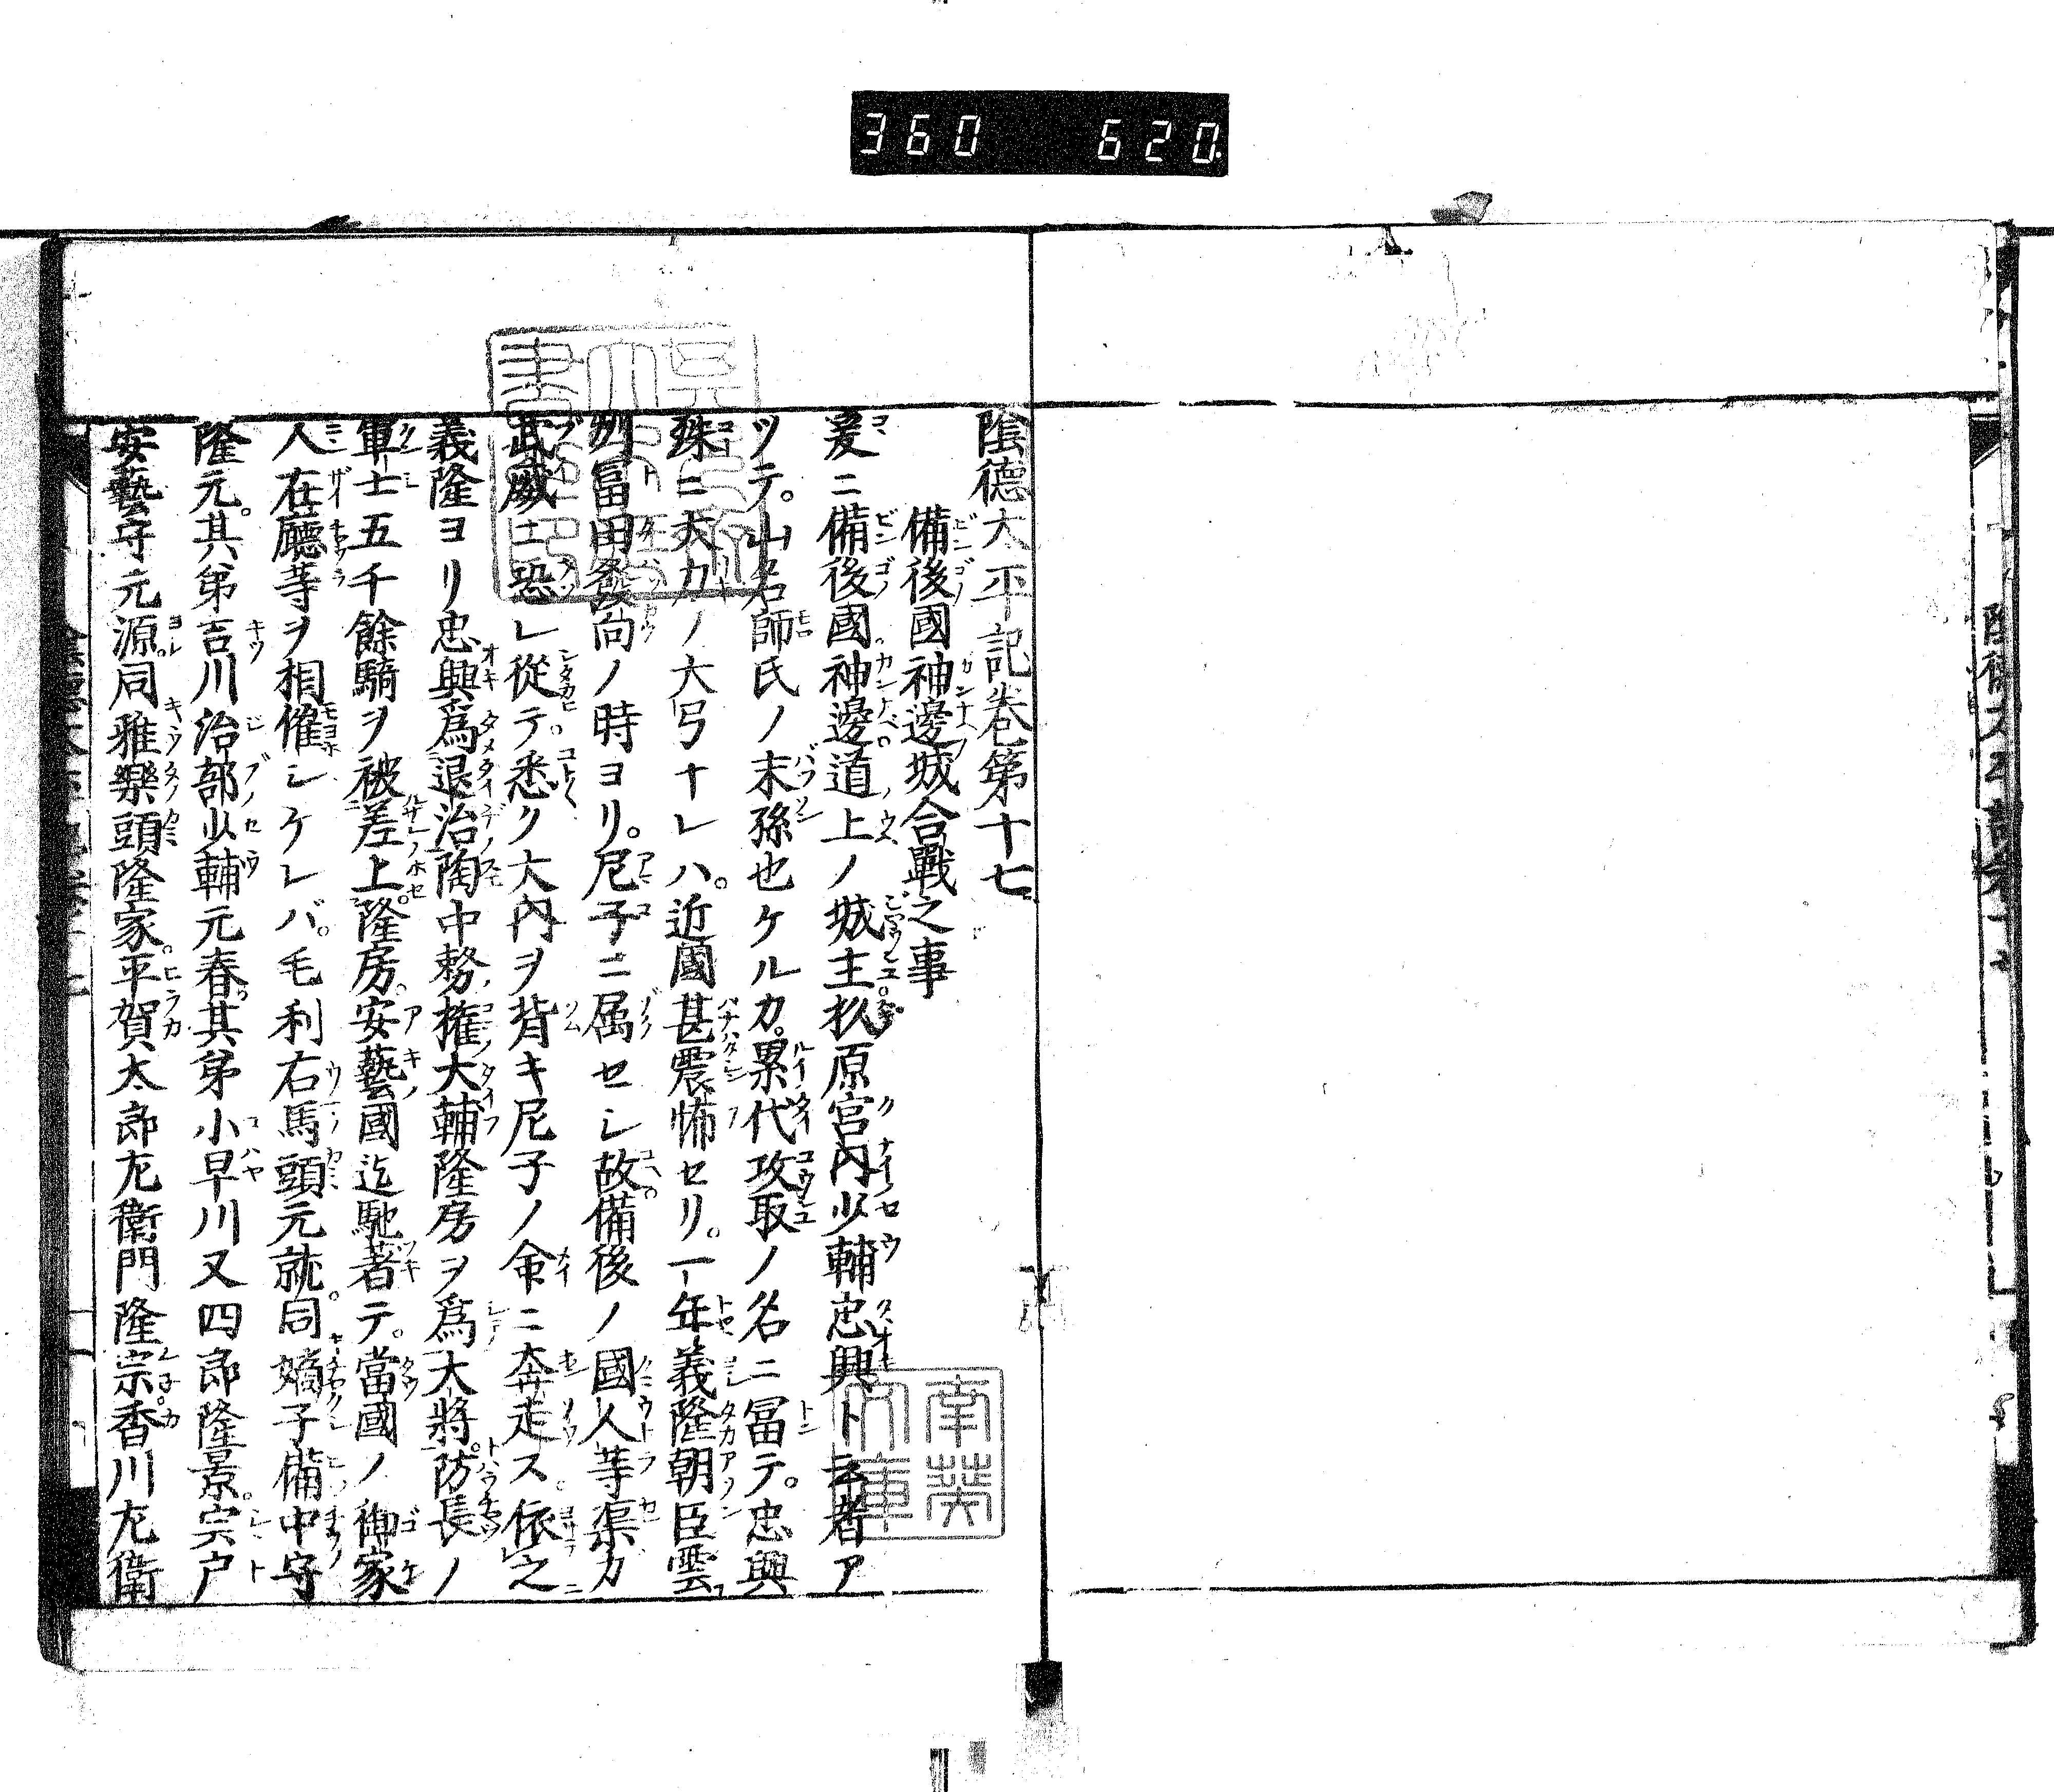 360 620.
陰德太平記卷第十七
備後國神邊城合戰之事
爰ニ備後國神邊道上ノ城主杦原宮內少輔忠興ト云者ア
ツテ。山名師氏ノ末孫也ケルカ。累代攻取ノ名ニ冨テ。忠興
殊ニ大力ノ大弓ナレハ。近國甚震怖セリ。一年義隆朝臣雲
州冨田發向ノ時ヨリ。尼子ニ属セシ故備後ノ國人等渠ガ
武威ニ恐レ從テ。悉ク大內ヲ背キ尼子ノ命ニ奔走ス。依之
義隆ヨリ忠興爲退治陶中務權大輔隆房ヲ爲大將。防長ノ
軍士五千餘騎ヲ被差上。隆房。安藝國迄馳著テ。當國ノ御家
人在廳等ヲ相催シケレバ。毛利右馬頭元就。同嫡子備中守
隆元。其弟吉川治部少輔元春。其弟小早川又四郎隆景。宍戶
安藝守元源。同雅樂頭隆家。平賀太郎左衞門隆宗。香川左衞
南葵文庫